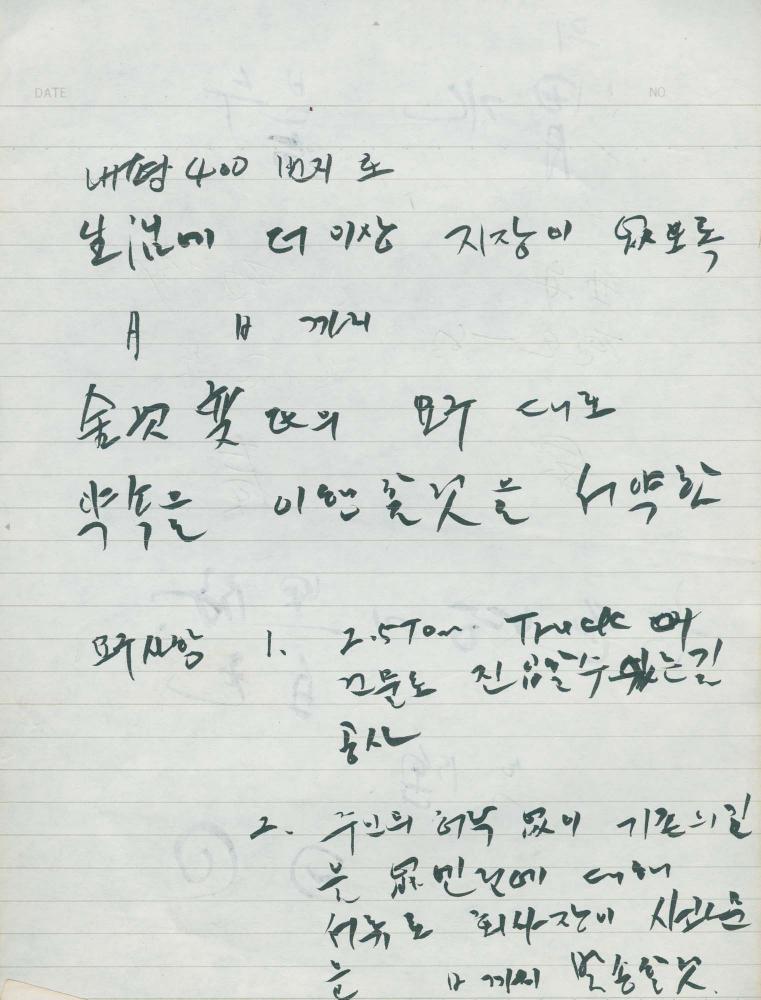 DATE NO.
내평 400 번지로
生活에 더 이상 지장이 없도록
月 日 까지
의 요구 대로
약속을 이행할것을 서약함
요구사항 1. 2.5Ton. Truck
건물로 진입할수 있는길
공사
2. 주인의 허락 없이 기존의길
을 민원에 대해
서류로 회사장이 사과문
을 日 까지 발송할것.